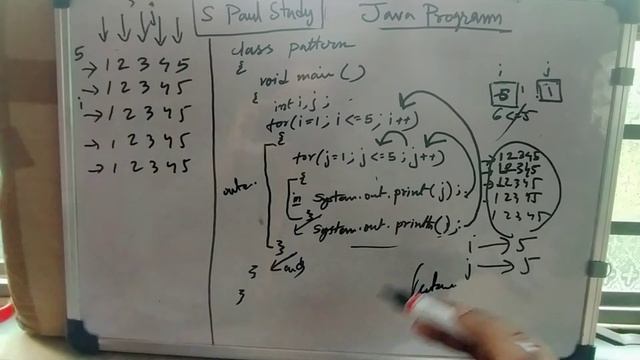 S Paul Study
Java Program
5
→ 1 2 3 4 5
→ 1 2 3 4 5
i → 1 2 3 4 5
→ 1 2 3 4 5
→ 1 2 3 4 5
class pattern
{
void main()
{ int i,j;
for(i=1; i<=5; i++)
{
for(j=1; j<=5; j++)
{
in system.out.print(j);
}
system.out.println();
}
} end
}
outer
i j
6 1 1
6<=5
1 2 3 4 5
1 2 3 4 5
1 2 3 4 5
1 2 3 4 5
1 2 3 4 5
i → 5
j → 5